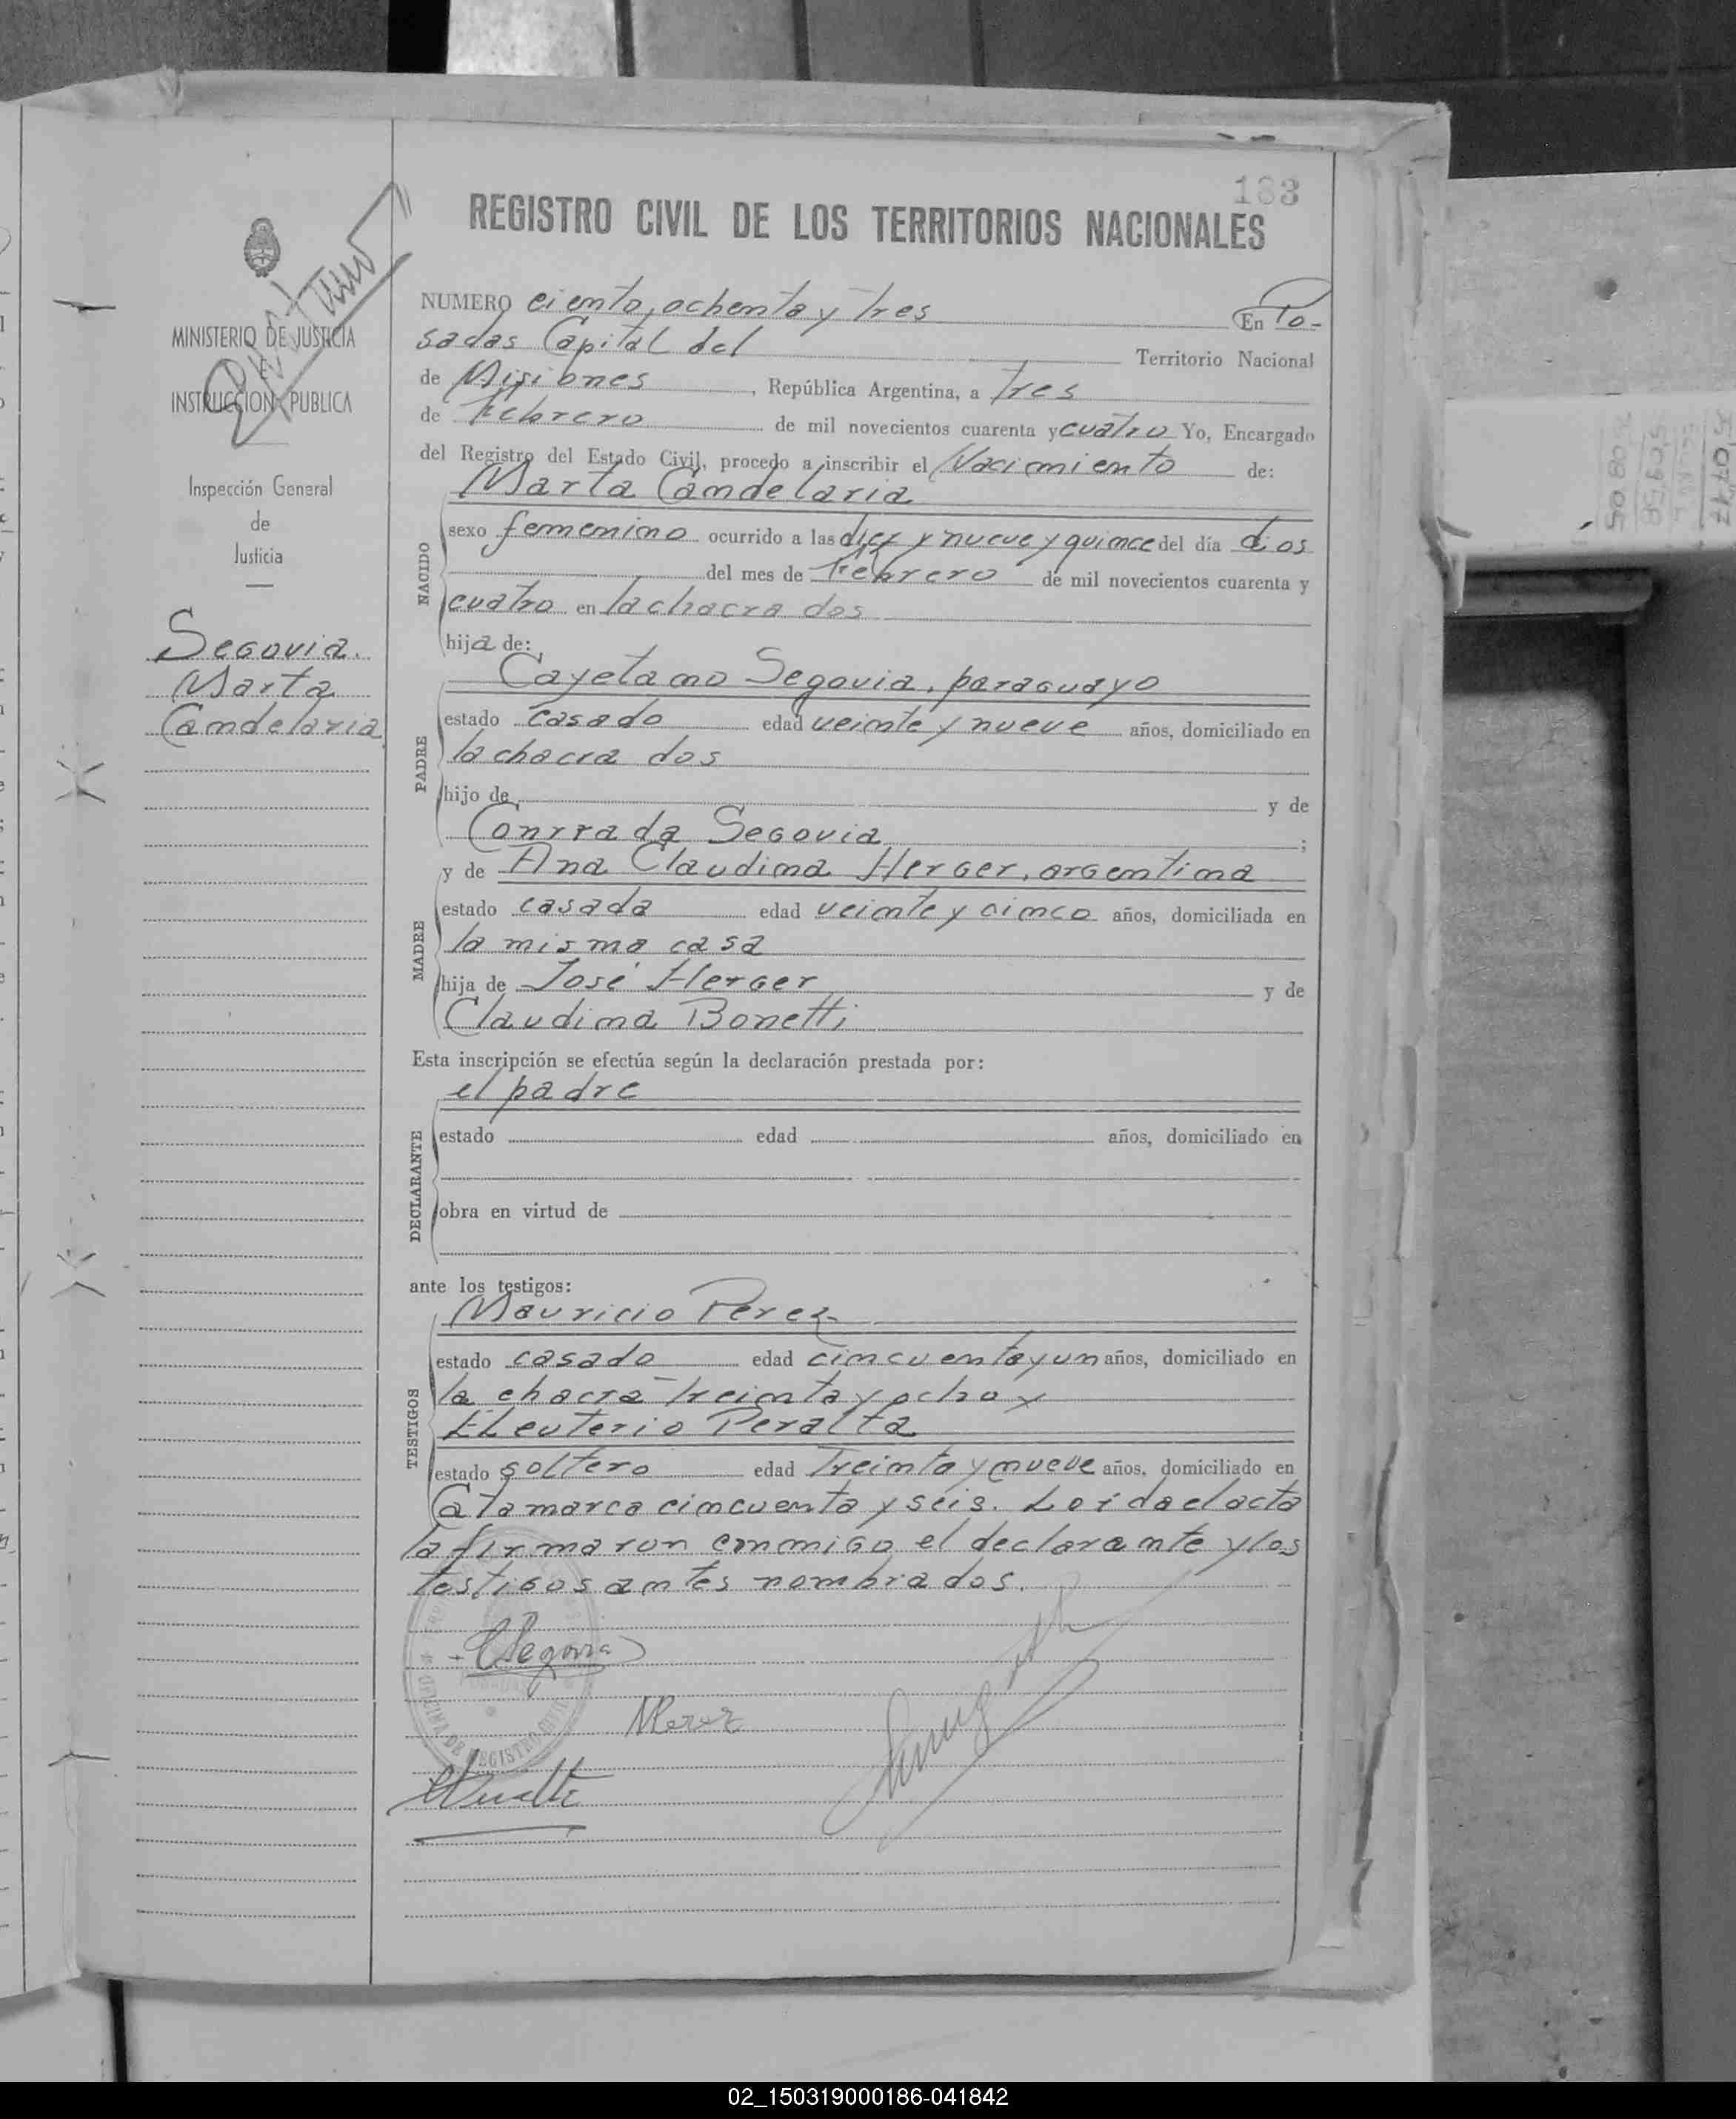 183
REGISTRO CIVIL DE LOS TERRITORIOS NACIONALES
MINISTERIO DE JUSTICIA
E
INSTRUCCION PUBLICA
Inspección General
de
Justicia
Segovia.
Marta
Candelaria
NUMERO ciento, ochenta y tres En Po-
sadas Capital del Territorio Nacional
de Misiones, República Argentina, a tres
de Febrero de mil novecientos cuarenta y cuatro Yo, Encargado
del Registro del Estado Civil, procedo a inscribir el Nacimiento de:
NACIDO
Marta Candelaria
sexo femenino ocurrido a las diez y nueve y quince del día dos
del mes de Febrero de mil novecientos cuarenta y
cuatro en la chacra dos
hija de:
PADRE
Cayetano Segovia, paraguayo
estado casado edad veinte y nueve años, domiciliado en
la chacra dos
hijo de y de
Conrrada Segovia;
MADRE
y de Ana Claudina Herger, argentina
estado casada edad veinte y cinco años, domiciliada en
la misma casa
hija de José Herger y de
Claudina Bonetti
Esta inscripción se efectúa según la declaración prestada por:
DECLARANTE
el padre
estado edad años, domiciliado en
obra en virtud de
ante los testigos:
TESTIGOS
Mauricio Perez
estado casado edad cincuenta y un años, domiciliado en
la chacra treinta y ocho y
Eleuterio Peralta
estado soltero edad treinta y nueve años, domiciliado en
Catamarca cincuenta y seis. Leida el acta
la firmaron conmigo el declarante y los
testigos antes nombrados.
CSegovia
MPerez
OFICINA DE REGISTRO CIVIL
02_150319000186-041842